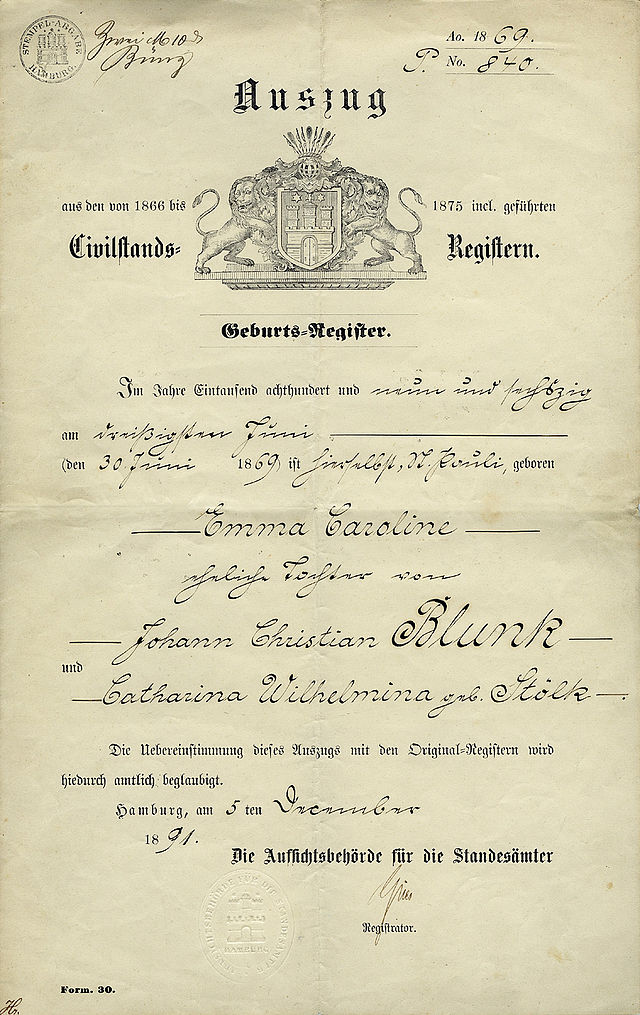 STEMPEL-ABGABE
HAMBURG.
Zwei M 10
Ao. 1869.
P. No. 840.
Auszug
aus den von 1866 bis 1875 incl. geführten
Civilstands= Registern.
Geburts=Register.
Im Jahre Eintausend achthundert und neun und sechszig
am dreißigsten Juni
(den 30 Juni 1869) ist hierselbst, St. Pauli, geboren
Emma Caroline
eheliche Tochter von
Johann Christian Blunk
und
Catharina Wilhelmina geb. Stölk
Die Uebereinstimmung dieses Auszugs mit den Original=Registern wird
hiedurch amtlich beglaubigt.
Hamburg, am 5 ten December
1891.
Die Aufsichtsbehörde für die Standesämter
Registrator.
AUFSICHTSBEHÖRDE FÜR DIE STANDESÄMTER
HAMBURG
Form. 30.